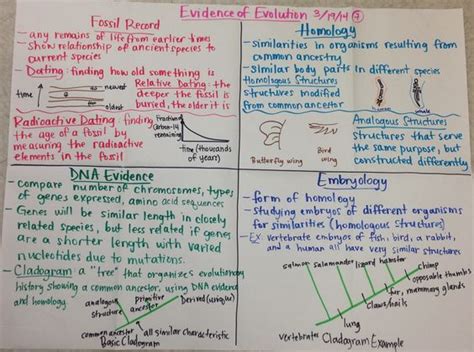 Evidence of Evolution 3/19/14 7
Fossil Record
- any remains of life from earlier times
- Show relationship of ancient species to
current species
- Dating: finding how old something is
time
newer
oldest
Relative Dating: the
deeper the fossil is
buried, the older it is
Radioactive Dating: finding
the age of a fossil by
measuring the radioactive
elements in the fossil
fraction
carbon-14
remaining
time (thousands
of years)
Homology
- similarities in organisms resulting from
common ancestry
- similar body parts in different species
Homologous Structures
structures modified
from common ancestor
Analogous Structures
structures that serve
the same purpose, but
constructed differently
Butterfly wing
Bird
wing
DNA Evidence
- compare number of chromosomes, types
of genes expressed, amino acid sequences
- Genes will be similar length in closely
related species, but less related if genes
are a shorter length with varied
nucleotides due to mutations.
- Cladogram a "tree" that organizes evolutionary
history showing a common ancestor, using DNA evidence
and homology.
analogous
structure
primitive
ancestor
Derived (unique)
common ancestor
all similar characteristic
Basic Cladogram
Embryology
- form of homology
- Studying embryos of different organisms
for similarities (homologous structures)
- Ex: vertebrate embryos of fish, bird, a rabbit,
and a human all have very similar structures
salmon
salamander
lizard
hamster
chimp
opposable thumbs
fur, mammary glands
claws/nails
lung
vertebrates
Cladogram Example